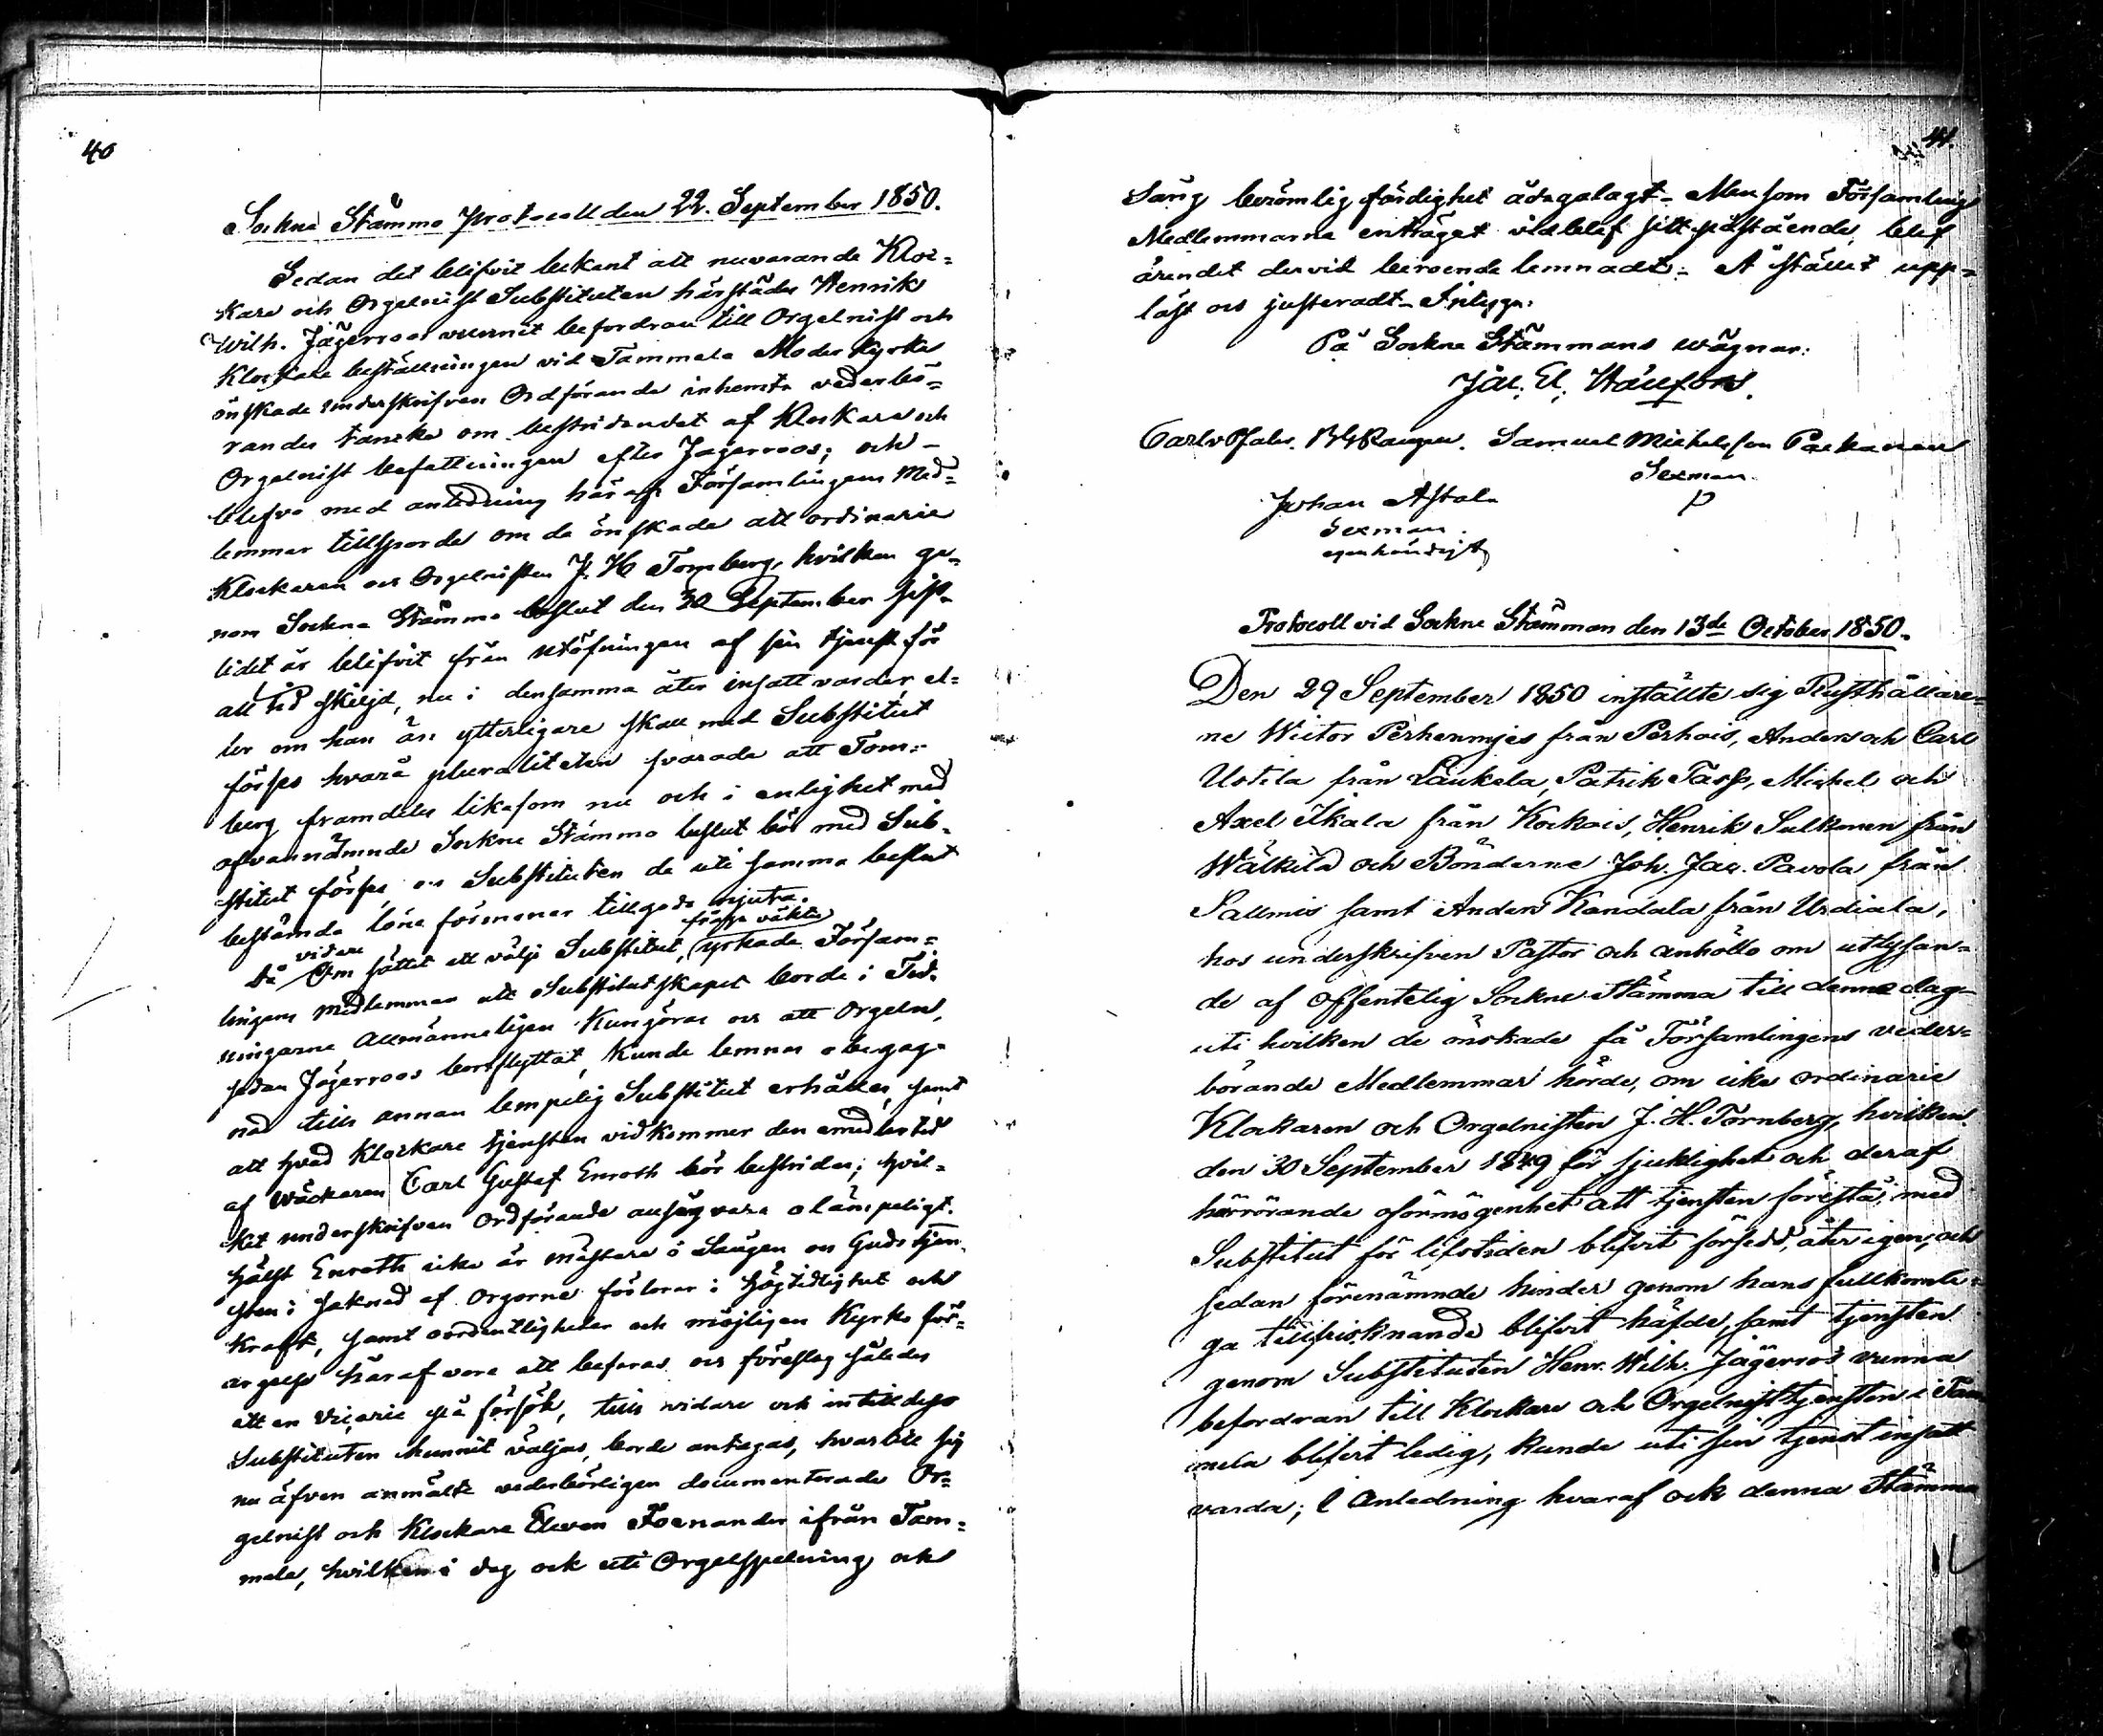 40
Sockne Stämmo Protocoll den 22. September 1850.
Sedan det blifvit bekant att nuvarande Kloc=
kare och Orgelnist Substituten härstädes Henrik
Wilh. Jägerroos vunnit befordran till Orgelnist och
Klockare beställningen vid Tammela Moder Kyrka
önskade underskrifven Ordförande inhemta vederbö=
randes tancka om bestridandet af Klockare och
Orgelnist befattningen efter Jägerroos; och –
blefvo med anledning häraf Församlingens Med=
lemmar tillsporde om de önskade att ordinarie
Klockaren och Orgelnisten J. H. Tornberg, hvilken ge=
nom Sockne Stämmo beslut den 30 September sist=
lidet år blifvit från utöfningen af sin tjenst för
all tid skiljd, nu i densamma åter insatt varder, el=
ler om han än ytterligare skall med Substitut
förses hvarå pluraliteten svarade att Torn=
berg framdeles likasom nu och i enlighet med
ofvannämnde Sockne Stämmo beslut bör med Sub=
stitut förses, och Substituten de uti samma beslut
bestämda löne förmoner tillgodo njuta.
vidare första väktes
Då Om sättet att välja Substitut, yrkade Försam=
lingens medlemmar att Substitutskapet borde i Tid=
ningarne Allmänneligen Kungöras och att Orgeln,
sedan Jägerroos bortflyttat, kunde lemnas obegag=
nad tills annan lempelig Substitut erhålles, samt
att hvad Klockare tjensten vidkommer den emedlertid
af Wäckaren Carl Gustaf Enroth bör bestridas; hvil=
ket underskrifven Ordförande ansåg vara olämpeligt.
hälst Enroth icke är mästare i Sången och Gudstjen=
sten i saknad af Orgorne förlorar i högtidlighet och
kraft, samt oordentligheter och möjligen Kyrko för=
argelse häraf vore att befaras och föreslog således
att en Vicarie på försök, tills vidare och intilldess
Substituten hunnit väljas, borde antagas, hvartill sig
nu äfven anmälte vederbörligen documenterade Or=
gelnist och Klockare Eleven Foenander ifrån Tam=
mela, hvilken i dag ock uti Orgelspelning och
41.
Sång berömlig färdighet ådagalagt – Men som Församlings
Medlemmarne enträget vidblef sitt påstående, blef
ärendet dervid beroende lemnadt: Å stället upp=
läst och justeradt – Intyga:
På Sockne Stämmans vägnar:
Jac. El. Hällfors.
Carl v Pfaler. Samuel Michelsson Packanen
Sexman.
Johan Astala
Sexman
egenhändigt
Protocoll vid Sockne Stämman den 13de October 1850.
Den 29 September 1850 inställte sig Rusthållare=
ne Wictor Perhenmjes från Perhois, Anders och Carl
Uotila från Laukela, Patrik Tasse, Michel och
Axel Ikala från Kockois, Henrik Sulkonen från
Wälkilä och Bönderne Joh. Jac. Pavola från
Sallmis samt Anders Kandala från Urdiala,
hos underskrifven Pastor och anhöllo om utlysan=
de af offentelig Sockne Stämma till denna dag
uti hvilken de önskade få Församlingens veder=
börande Medlemmar hörde, om icke ordinarie
Klockaren och Orgelnisten J. H. Tornberg, hvilken
den 30 September 1849 för sjuklighet och deraf
härrörande oförmögenhet att tjensten förestå, med
Substitut för lifstiden blifvit försedd, åter igen, och
sedan förenämnde hinder genom hans fullkomli=
ga tillfrisknande blifvit häfde, samt tjensten
genom Substituten Henr. Wilh. Jägerroos vunna
befordran till Klockare och Orgelnisttjensten i Tam
mela blifvit ledig, kunde uti sin tjenst insatt
varda; I Anledning hvaraf ock denna Stämma